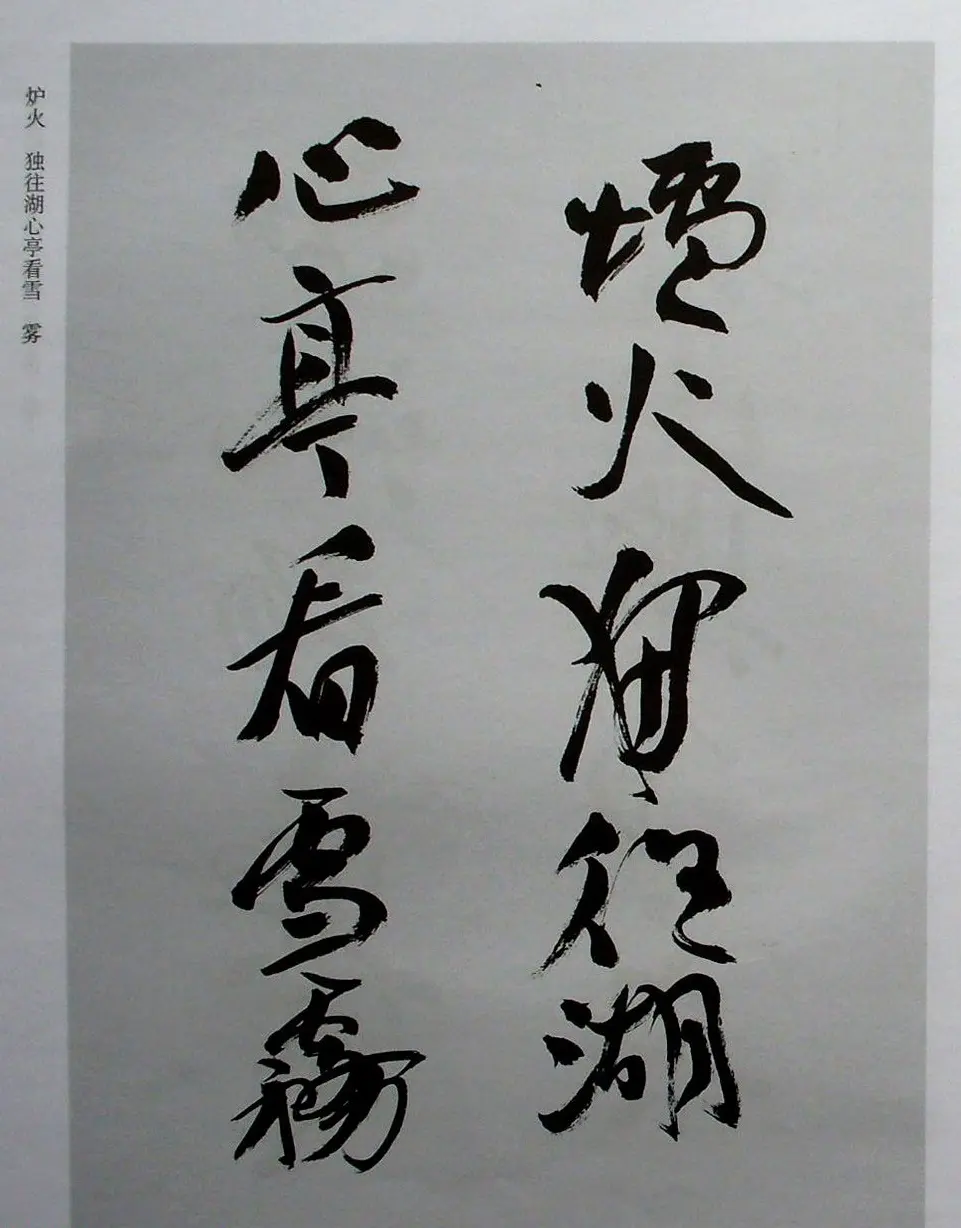 爐火獨往湖
心亭看雪霧
炉火 独往湖心亭看雪 雾